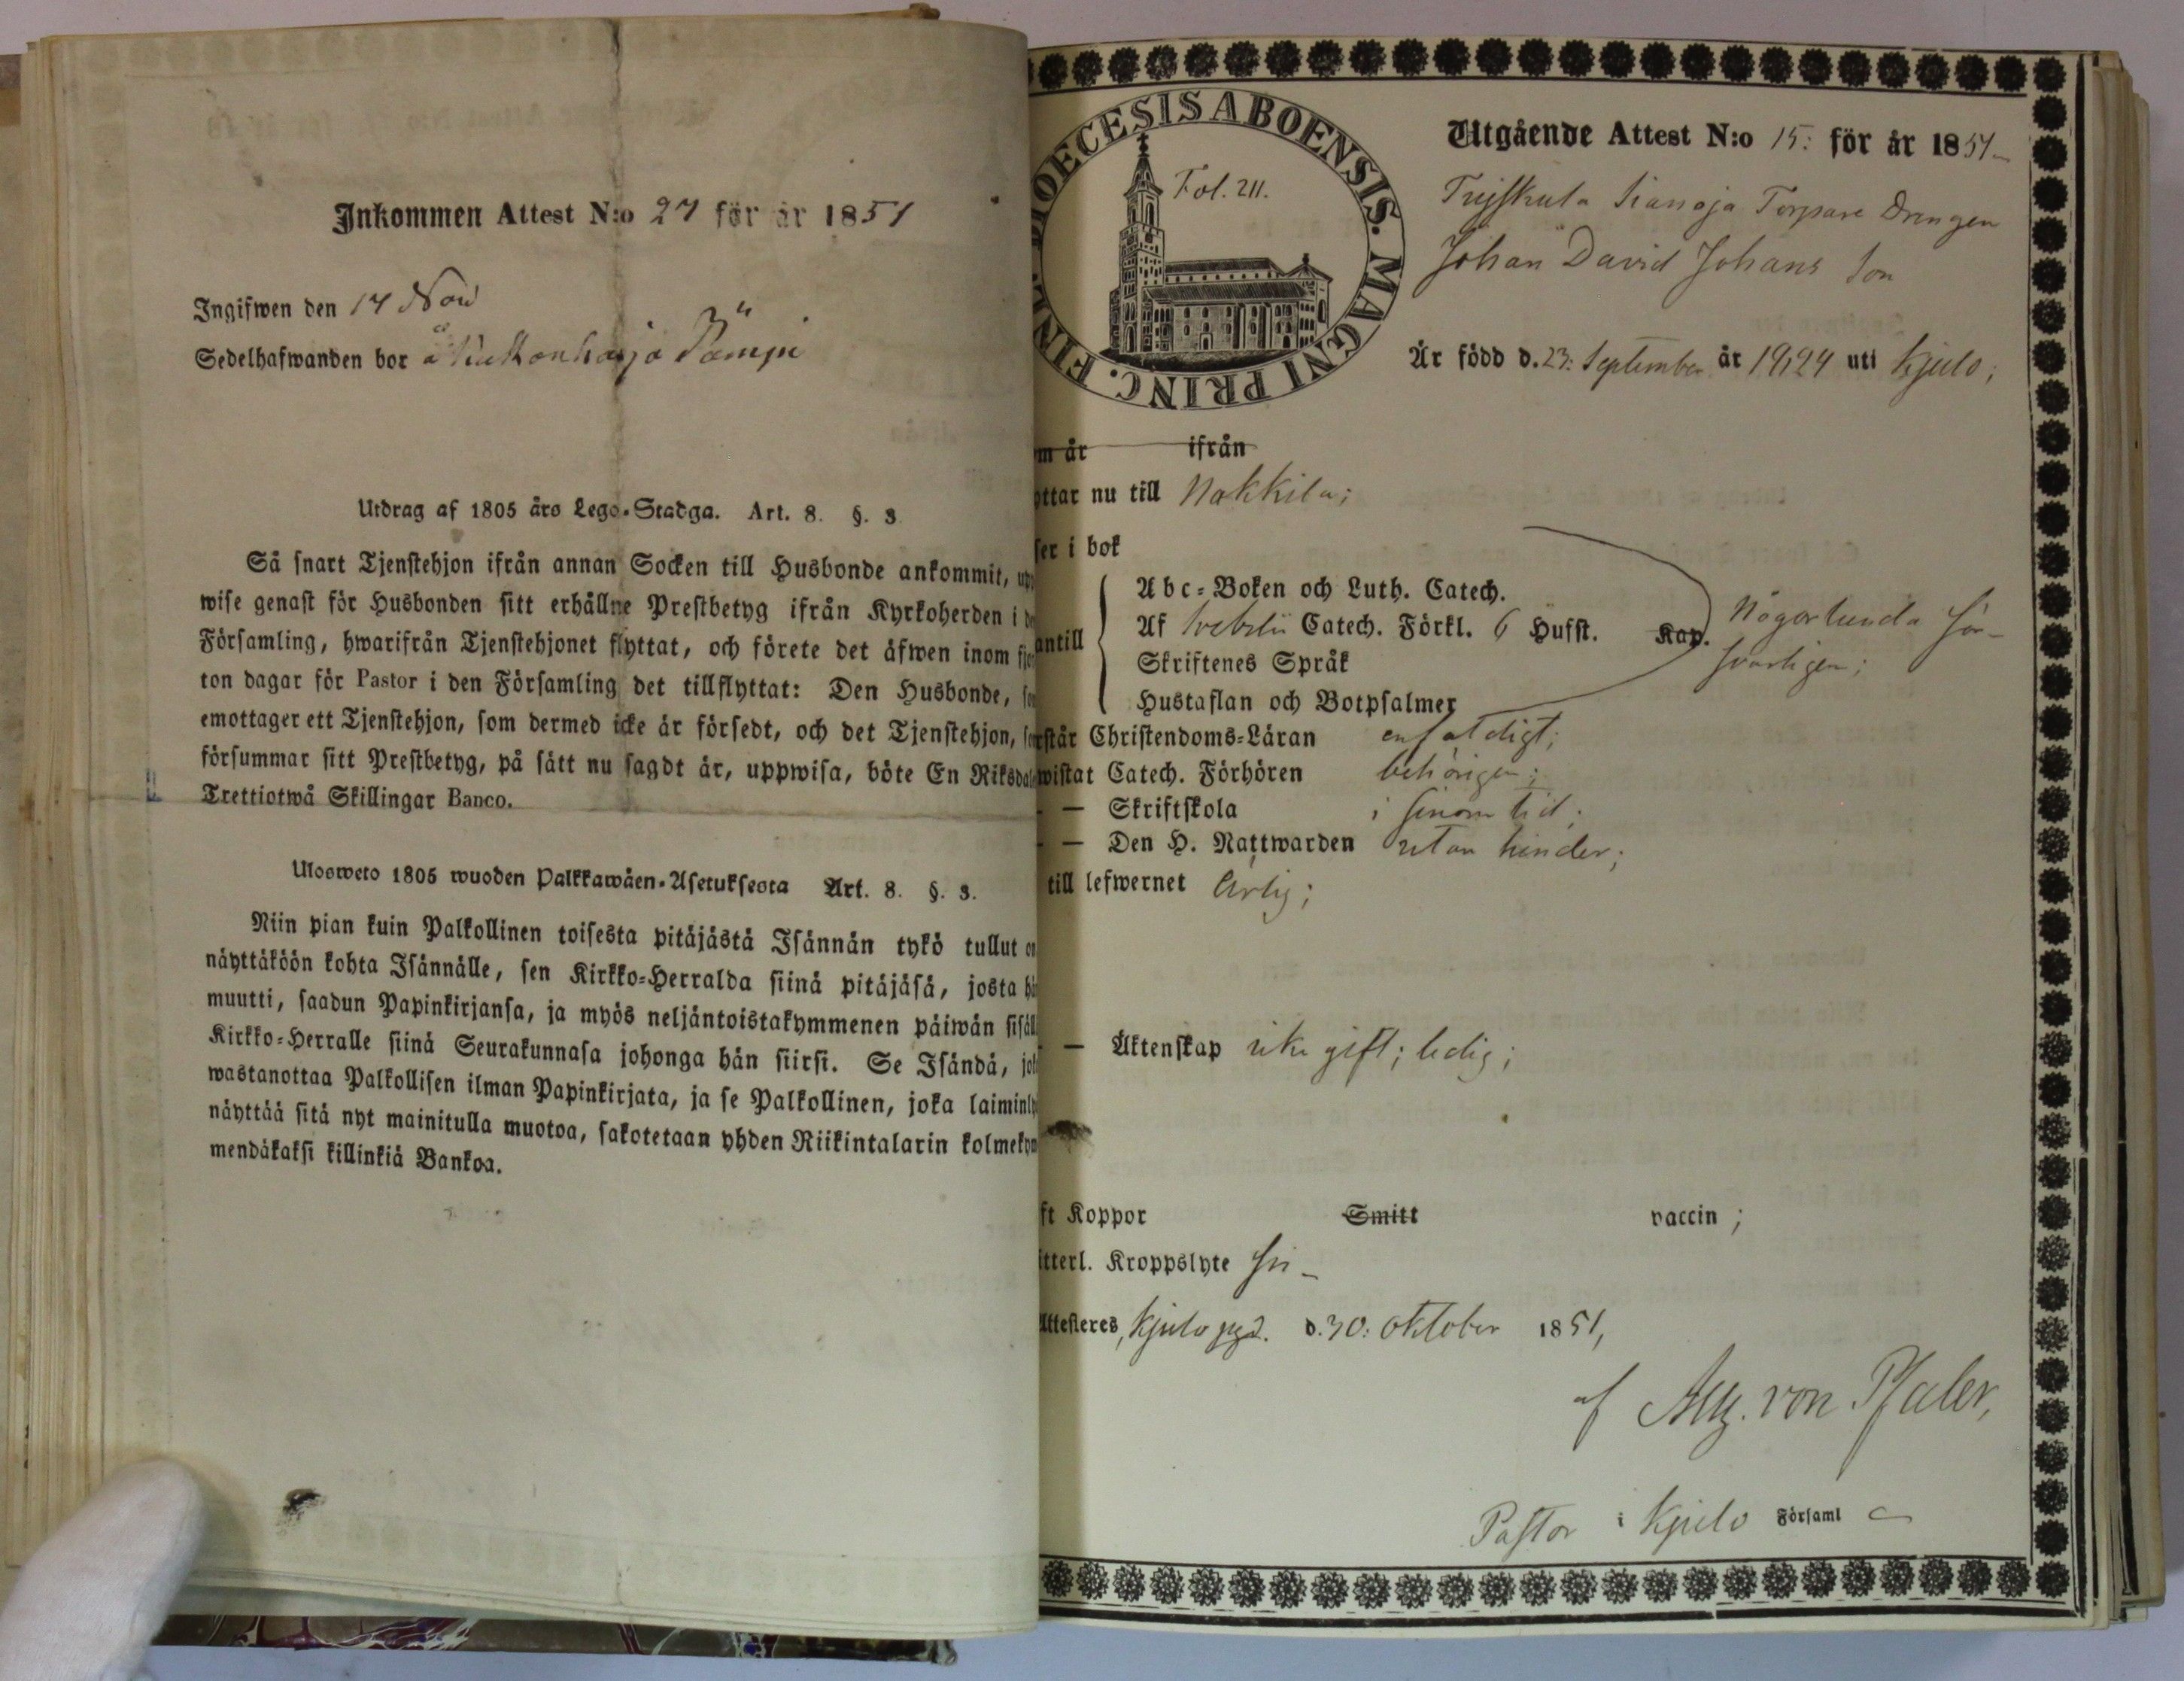 Inkommen Attest N:o 27 för år 1851
Ingifwen den 14 Nov
Sedelhafwanden bor å
Utdrag af 1805 års Lego-Stadga. Art. 8. §. 3
Så snart Tjenstehjon ifrån annan Socken till Husbonde ankommit, upp
wise genast för Husbonden sitt erhållne Prestbetyg ifrån Kyrkoherden i de
Församling, hwarifrån Tjenstehjonet flyttat, och förete det äfwen inom fjor
ton dagar för Pastor i den Församling det tillflyttat: Den Husbonde, som
emottager ett Tjenstehjon, som dermed icke är försedt, och det Tjenstehjon, som
försummar sitt Prestbetyg, på sätt nu sagdt är, uppwisa, böte En Riksdale
Trettiotwå Skillingar Banco.
Ulosweto 1805 wuoden Palkkawäen-Asetuksesta Art. 8. §. 3.
Niin pian kuin Palkollinen toisesta pitäjästä Isännän tykö tullut on
näyttäköön kohta Isännälle, sen Kirkko-Herralda siinä pitäjäsä, josta hän
muutti, saadun Papinkirjansa, ja myös neljäntoistakymmenen päiwän sisäll
Kirkko-Herralle siinä Seurakunnasa johonga hän siirsi. Se Isändä, jok
wastanottaa Palkollisen ilman Papinkirjata, ja se Palkollinen, joka laiminly
näyttää sitä nyt mainitulla muotoa, sakotetaan yhden Riikintalarin kolmekym
mendäkaksi killinkiä Bankoa.
DIOECESIS ABOENSIS. MAGNI PRINC. FINL.
Fol. 211.
Utgående Attest N:o 15: för år 1851
Torpare Drengen
Johan David Johans Son
Är född d. 23: September år 1824 uti Kjulo;
m år ifrån
ttar nu till Nakkila;
ser i bok
Abc-Boken och Luth. Catech.
antill Af Svebelii Catech. Förkl. 6 Hufst. Kap. Någorlunda för-
svarligen;
Skriftenes Språk
Hustaflan och Botpsalmer
rstår Christendoms-Läran enfaldigt;
wistat Catech. Förhören behörigen;
— Skriftskola i sinom tid;
— Den H. Nattwarden utan hinder;
till lefwernet ärlig;
— Äktenskap icke gift; ledig;
ft Koppor Smitt vaccin;
itterl. Kroppslyte fri
Attesteres, Kjulo pgd. d. 30: Oktober 1851,
af von Pfaler,
Pastor i Kjulo Församl